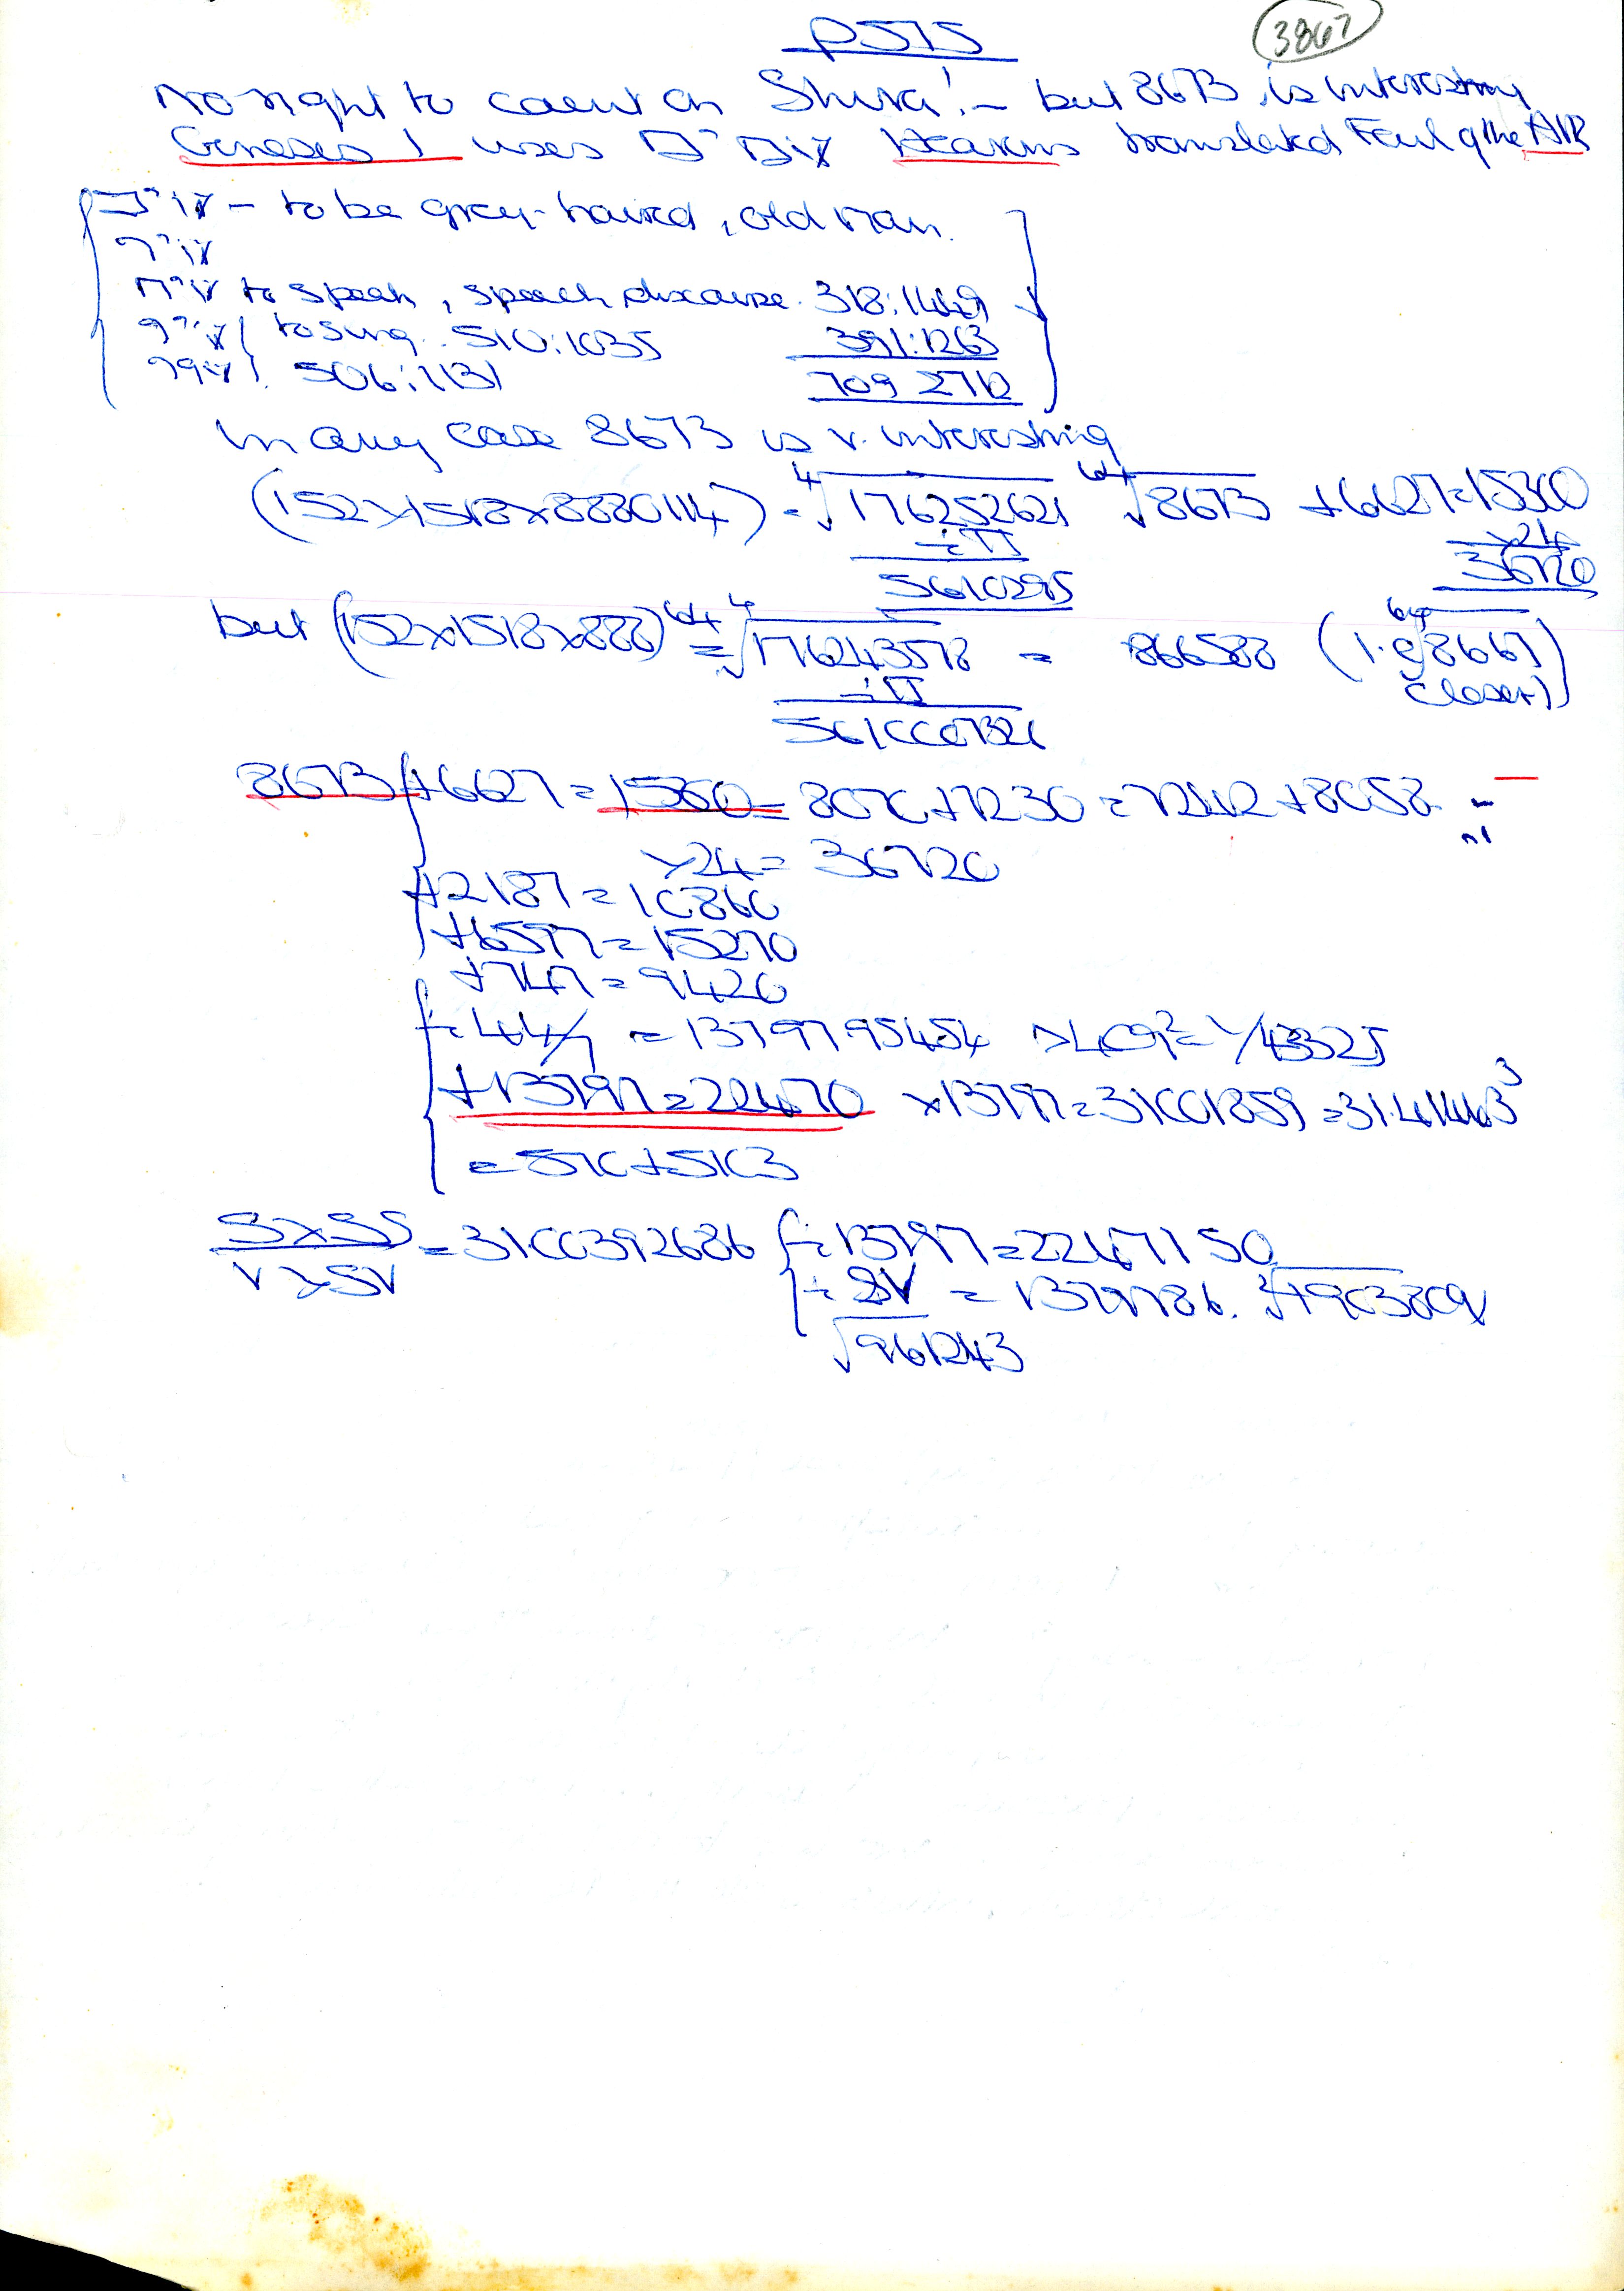 P575
3867
No right to count on Shura! - but 8673 is interesting
Genesis 1 uses Heavens translated Foul of the AIR
- to be grey-haired, old man.
to speak, speech discourse. 318:1449
to sing. 510:1035 391:1263
506:1131 709 2712
In any case 8673 is v. interesting
(152×1518×8880114) = ⁴√176252621 ⁶⁴√8673 +6627=15300
÷π ×24
5610295 36720
but (152×1518×888)⁶⁴ = ⁴√176243578 = 866588 (1.e ⁶⁴√8667
÷π closer)
5610007326
8673 +6627 = 15300 = 8070+7230 = 7242+8058
×24 = 36720
+2187 = 10860
+6597 = 15270
+747 = 9420
÷44/7 = 1379795454 >409² =
+13797 = 22470 ×13797=31001859 = 31.41443³
= 570+5103
S×SS = 3100392686 ÷ 13797 = 22471150
V×SV ÷ SV = 1379786.
√961243